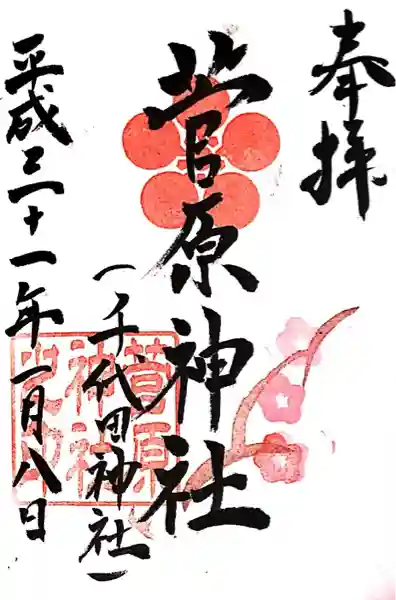 奉拝
菅原神社
(千代田神社)
平成三十一年一月八日
菅原
神社
之印